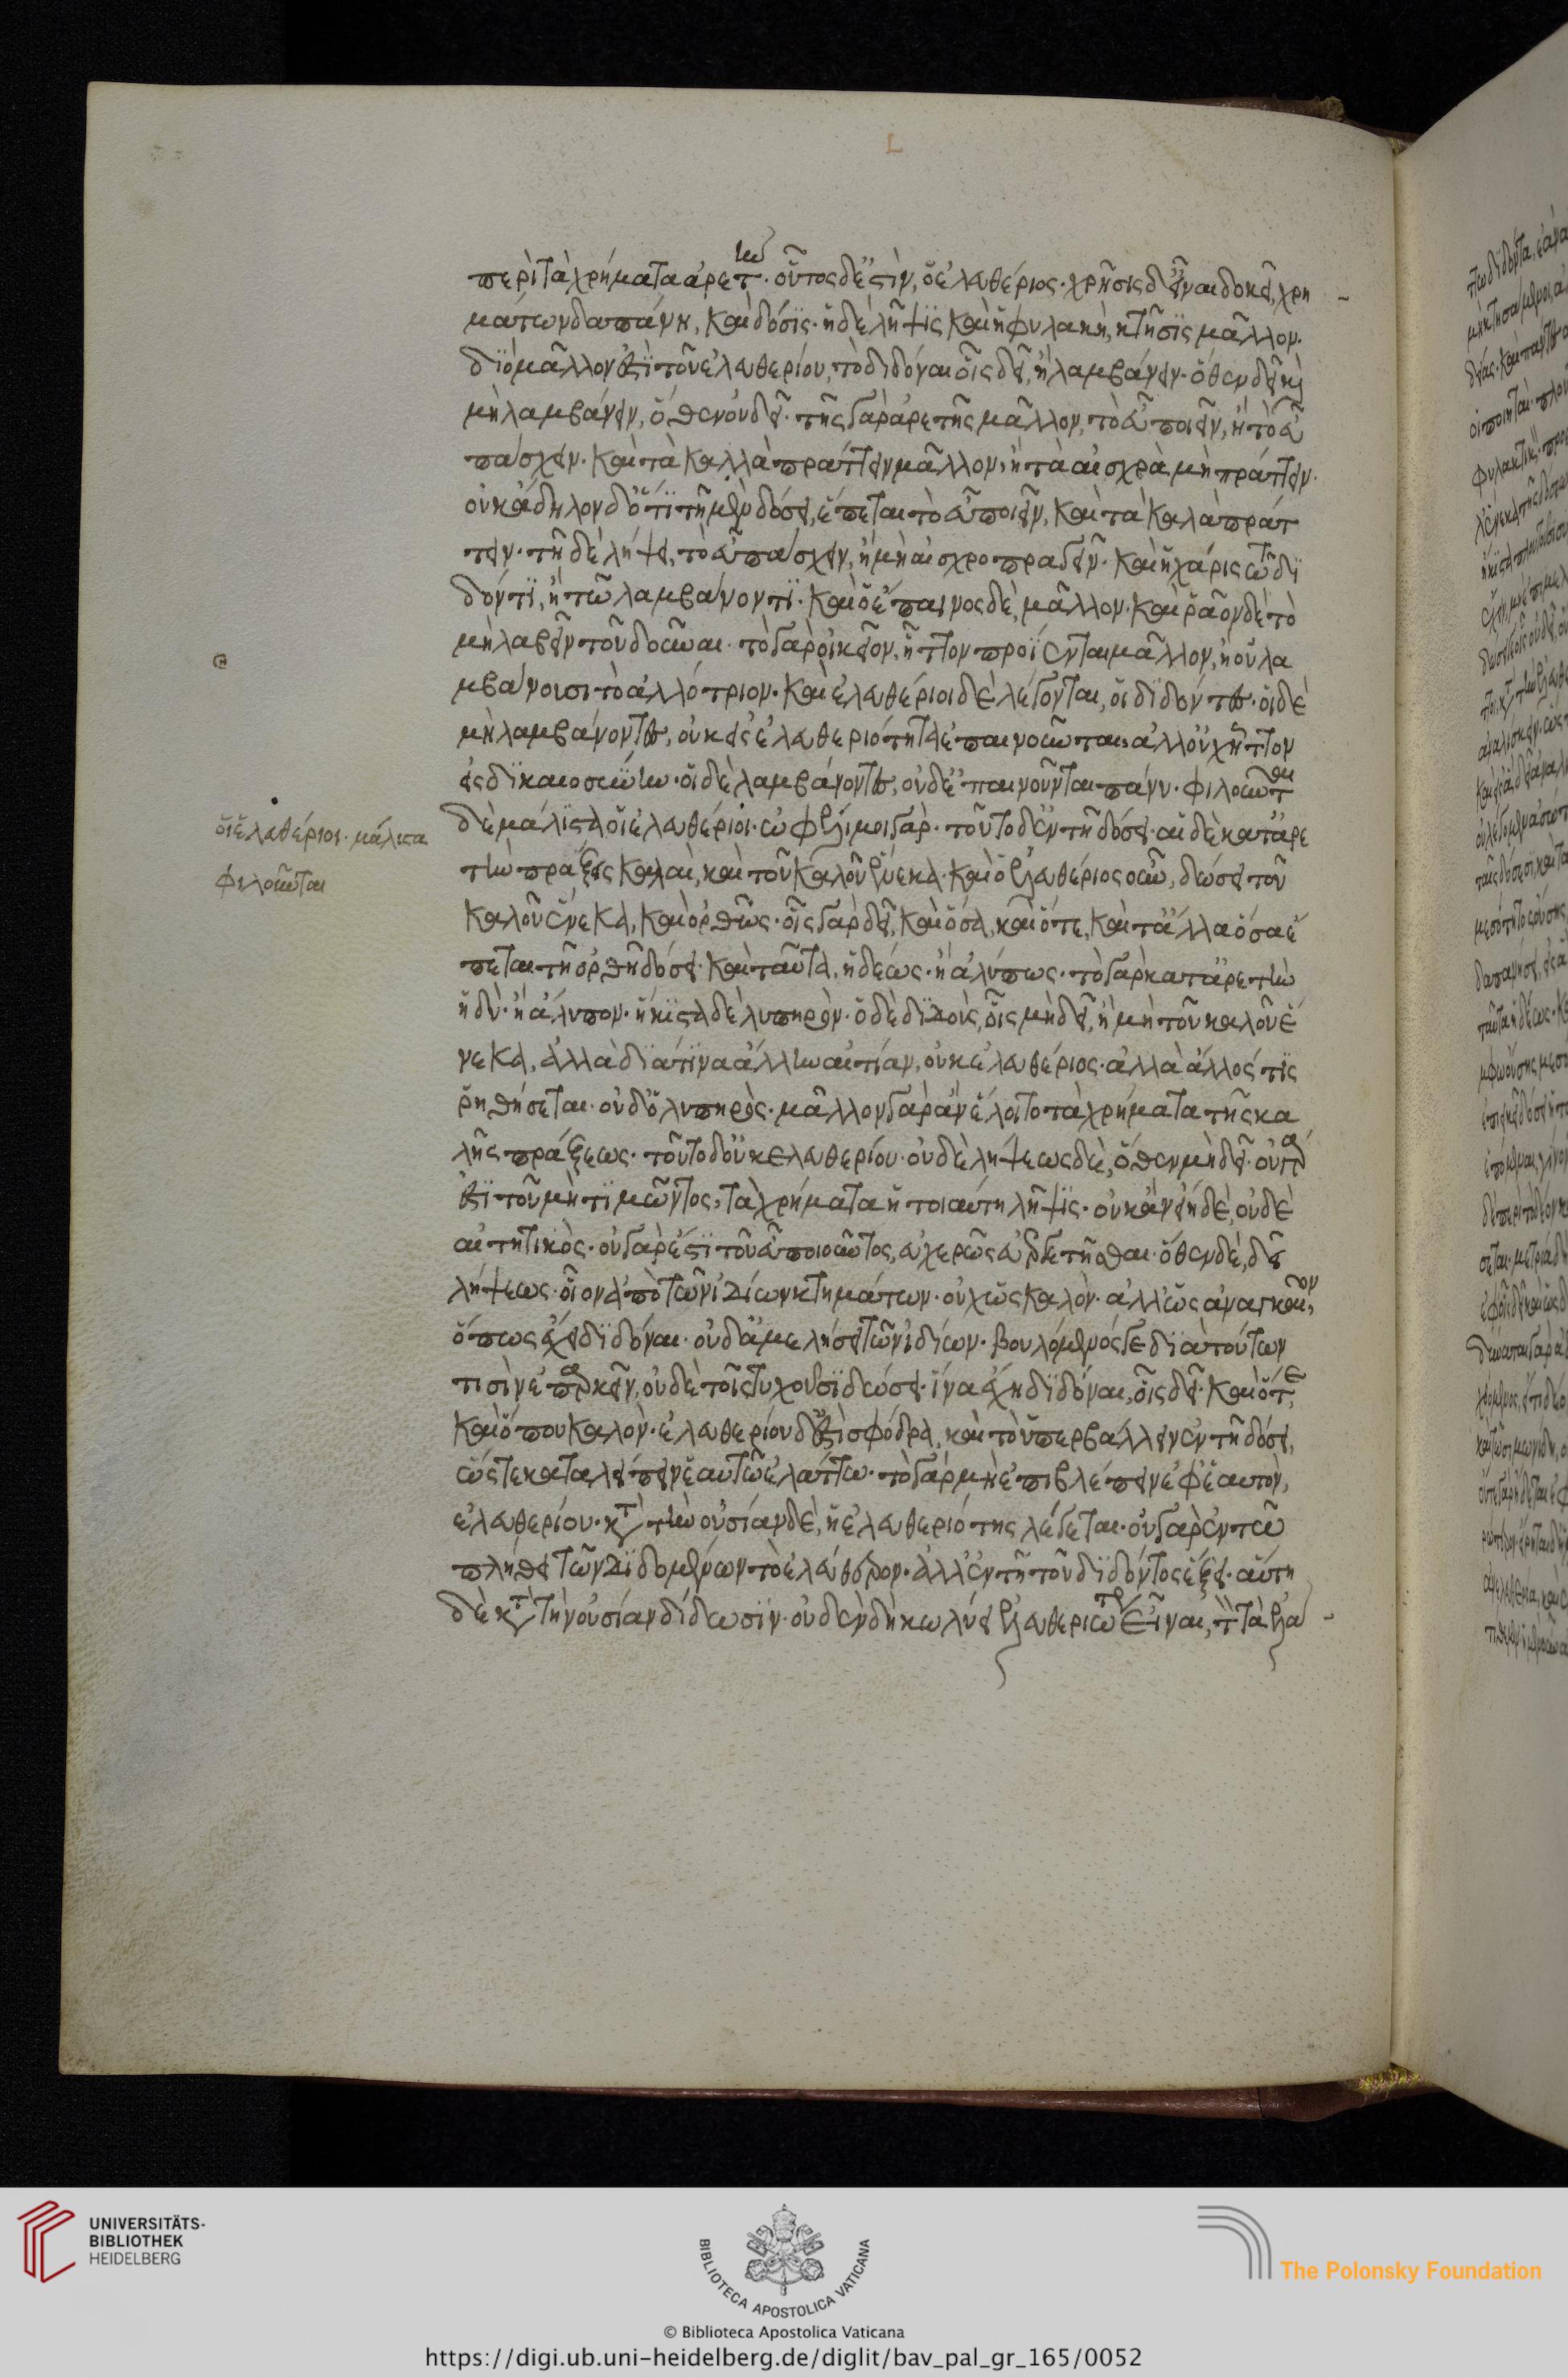 περὶ τὰ χρήματα ἀρετήν· οὗτος δ' ἐστὶν, ὁ ἐλευθέριος· χρῆσις δ' εἶναι δοκεῖ, χρη
μάτων δαπάνη, καὶ δόσϊς· ἡ δὲ λῆψϊς καὶ ἡ φυλακὴ, κτῆσϊς μᾶλλον.
δϊὸ μᾶλλον ἐστὶ τοῦ ἐλευθερίου, τὸ διδόναι οἷς δεῖ, ἢ λαμβάνειν ὅθεν δεῖ καὶ
μὴ λαμβάνειν, ὅθεν οὐ δεῖ· τῆς γὰρ ἀρετῆς μᾶλλον, τὸ εὖ ποιεῖν, ἢ τὸ εὖ
πάσχειν· καὶ τὰ καλλὰ πράττειν μᾶλλον, ἢ τὰ αἰσχρὰ μὴ πράττειν.
οὐκ ἄδηλον δ' ὅτϊ τῇ μὲν δόσει, ἕπεται τὸ εὖ ποιεῖν, καὶ τὰ καλὰ πράτ
τειν· τῇ δὲ λήψει, τὸ εὖ πάσχειν, ἢ μὴ αἰσχροπραγεῖν· καὶ ἡ χάρις τῷ δϊ
δόντϊ, ἢ τῷ λαμβάνοντϊ· καὶ ὁ ἔπαινος δὲ, μᾶλλον· καὶ ῥᾷον δὲ τὸ
μὴ λαβεῖν τοῦ δοῦναι· τὸ γὰρ οἰκεῖον, ἧττον προΐενται μᾶλλον, ἢ οὐ λα
μβάνουσι τὸ ἀλλότριον· καὶ ἐλευθέριοι δὲ λέγονται, οἱ δϊδόντες· οἱ δὲ
μὴ λαμβάνοντες, οὐκ εἰς ἐλευθεριότητα ἐπαινοῦνται, ἀλλ' οὐχ ἧττον
εἰς δϊκαιοσύνην· οἱ δὲ λαμβάνοντες, οὐδ' ἐπαινοῦνται πάνυ· φιλοῦνται
δὲ μάλϊστα οἱ ἐλευθέριοι· ὠφέλιμοι γάρ· τοῦτο δ' ἐν τῇ δόσει· αἱ δὲ κατ' ἀρε
τὴν πράξεις καλαὶ, καὶ τοῦ καλοῦ ἕνεκα· καὶ ὁ ἐλευθέριος οὖν, δώσει τοῦ
καλοῦ ἕνεκα, καὶ ὀρθῶς· οἷς γὰρ δεῖ, καὶ ὅσα, καὶ ὅτε, καὶ τἄλλα ὅσα ἕ
πεται τῇ ὀρθῇ δόσει· καὶ ταῦτα, ἡδέως· ἢ ἀλύπως· τὸ γὰρ κατ' ἀρετὴν
ἡδὺ· ἢ ἄλυπον· ἥκϊστα δὲ λυπηρὸν· ὁ δὲ δϊδοὺς, οἷς μὴ δεῖ, ἢ μὴ τοῦ καλοῦ ἕ
νεκα, ἀλλὰ δϊά τϊνα ἄλλην αἰτίαν, οὐκ ἐλευθέριος· ἀλλὰ ἄλλός τϊς
ῥηθήσεται· οὐδ' ὁ λυπηρὸς· μᾶλλον γὰρ ἂν ἕλοιτο τὰ χρήματα τῆς κα
λῆς πράξεως· τοῦτο δ' οὐκ ἐλευθερίου· οὐδὲ λήψεως δὲ, ὅθεν μὴ δεῖ· οὐ γὰρ
ἐστὶ τοῦ μὴ τϊμῶντος, τὰ χρήματα ἡ τοιαύτη λῆψϊς· οὐκ ἂν εἴη δὲ, οὐδὲ
αἰτητικὸς· οὐ γὰρ ἔστϊ τοῦ εὖ ποιοῦντος, εὐχερῶς εὐεργετῆσθαι· ὅθεν δὲ, δεῖ
λήψεως· οἷον ἀπὸ τῶν ἰδίων κτημάτων· οὐχ ὡς καλὸν· ἀλλ' ὡς ἀναγκαῖον,
ὅπως ἔχει δϊδόναι· οὐδ' ἀμελήσει τῶν ἰδίων· βουλόμενός γε δϊὰ τούτων
τισὶν ἐπαρκεῖν, οὐδὲ τοῖς τυχοῦσϊ δώσει· ἵνα ἔχῃ δϊδόναι, οἷς δεῖ· καὶ ὅτε,
καὶ ὅπου καλὸν· ἐλευθερίου δ' ἐστὶ σφόδρα, καὶ τὸ ὑπερβάλλειν ἐν τῇ δόσει,
ὥστε καταλείπειν ἑαυτῷ ἐλάττω· τὸ γὰρ μὴ ἐπιβλέπειν ἐφ' ἑαυτὸν,
ἐλευθερίου· κατὰ τὴν οὐσίαν δὲ, ἡ ἐλευθεριότης λέγεται· οὐ γὰρ ἐν τῷ
πλήθει τῶν δϊδομένων τὸ ἐλευθέριον· ἀλλ' ἐν τῇ τοῦ δϊδόντος ἕξει· αὕτη
δὲ κατὰ τὴν οὐσίαν δίδωσϊν· οὐδὲν δὴ κωλύει ἐλευθεριώτερον εἶναι, τὸν τὰ ἐλά
οἱ ἐλευθέριοι· μάλιστα
φιλοῦνται
UNIVERSITÄTS-
BIBLIOTHEK
HEIDELBERG
BIBLIOTECA APOSTOLICA VATICANA
© Biblioteca Apostolica Vaticana
The Polonsky Foundation
https://digi.ub.uni-heidelberg.de/diglit/bav_pal_gr_165/0052